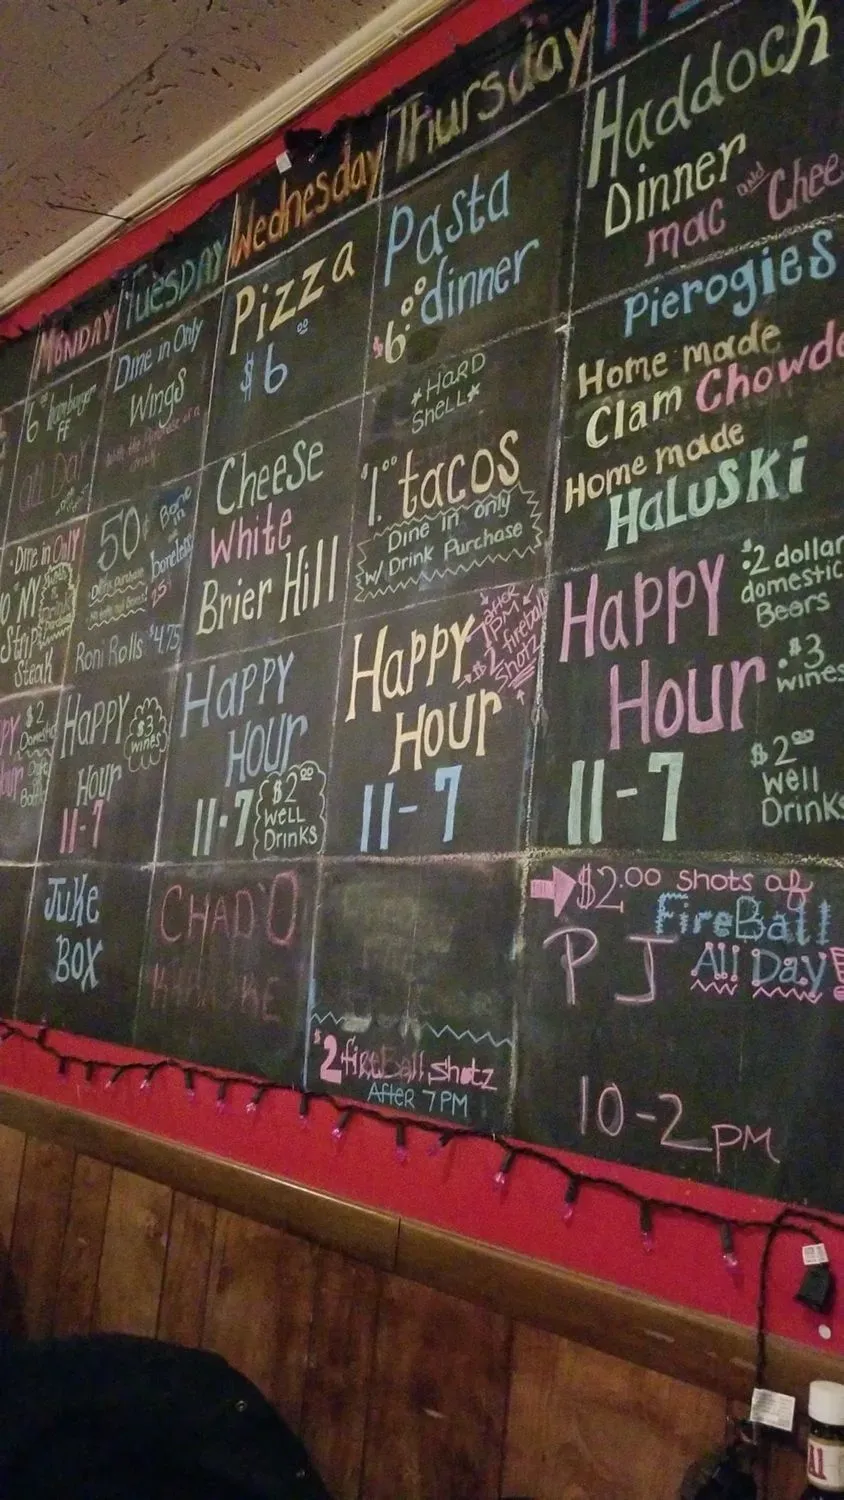 Monday
6 Hamburger
FF
All Day
Dine in Only
NY
Strip
Steak
$2
Hour
Tuesday
Dine in Only
Wings
50¢
Bone
in
boneless
Roni Rolls $4.75
Happy
Hour
11-7
$3
wines
Juke
Box
Wednesday
Pizza
$6.00
Cheese
White
Brier Hill
Happy
Hour
11-7
$2.00
well
Drinks
Chad'O
Karaoke
Thursday
Pasta
dinner
$6.00
*Hard
Shell*
$1.00 tacos
Dine in only
w/ Drink Purchase
Happy
Hour
11-7
After
7PM
$2 fireball
Shotz
$2 fireball shotz
After 7PM
Haddock
Dinner
mac and Chee
Pierogies
Home made
Clam Chowde
Home made
Haluski
Happy
Hour
11-7
$2 dollar
domestic
Beers
$3
wines
$2.00
well
Drinks
$2.00 shots of
FireBall
All Day
PJ
10-2 pm
A1